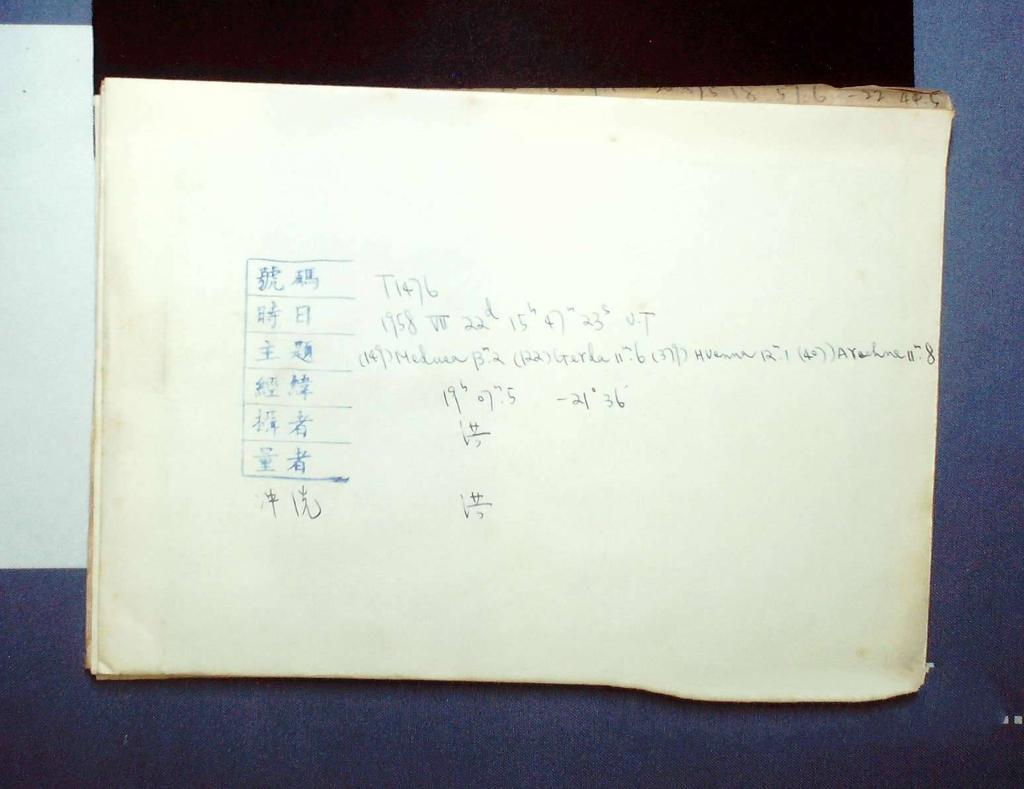 51.6 -22 44.5
號碼 T1476
時日 1958 VII 22d 15h 47m 23s U.T
主題 (149) Medusa 13m.2 (122) Gerda 11m.6 (379) Huenna 12m.1 (407) Arachne 11m.8
經緯 19h 07m.5 -21° 36'
攝者 洪
量者
冲洗 洪